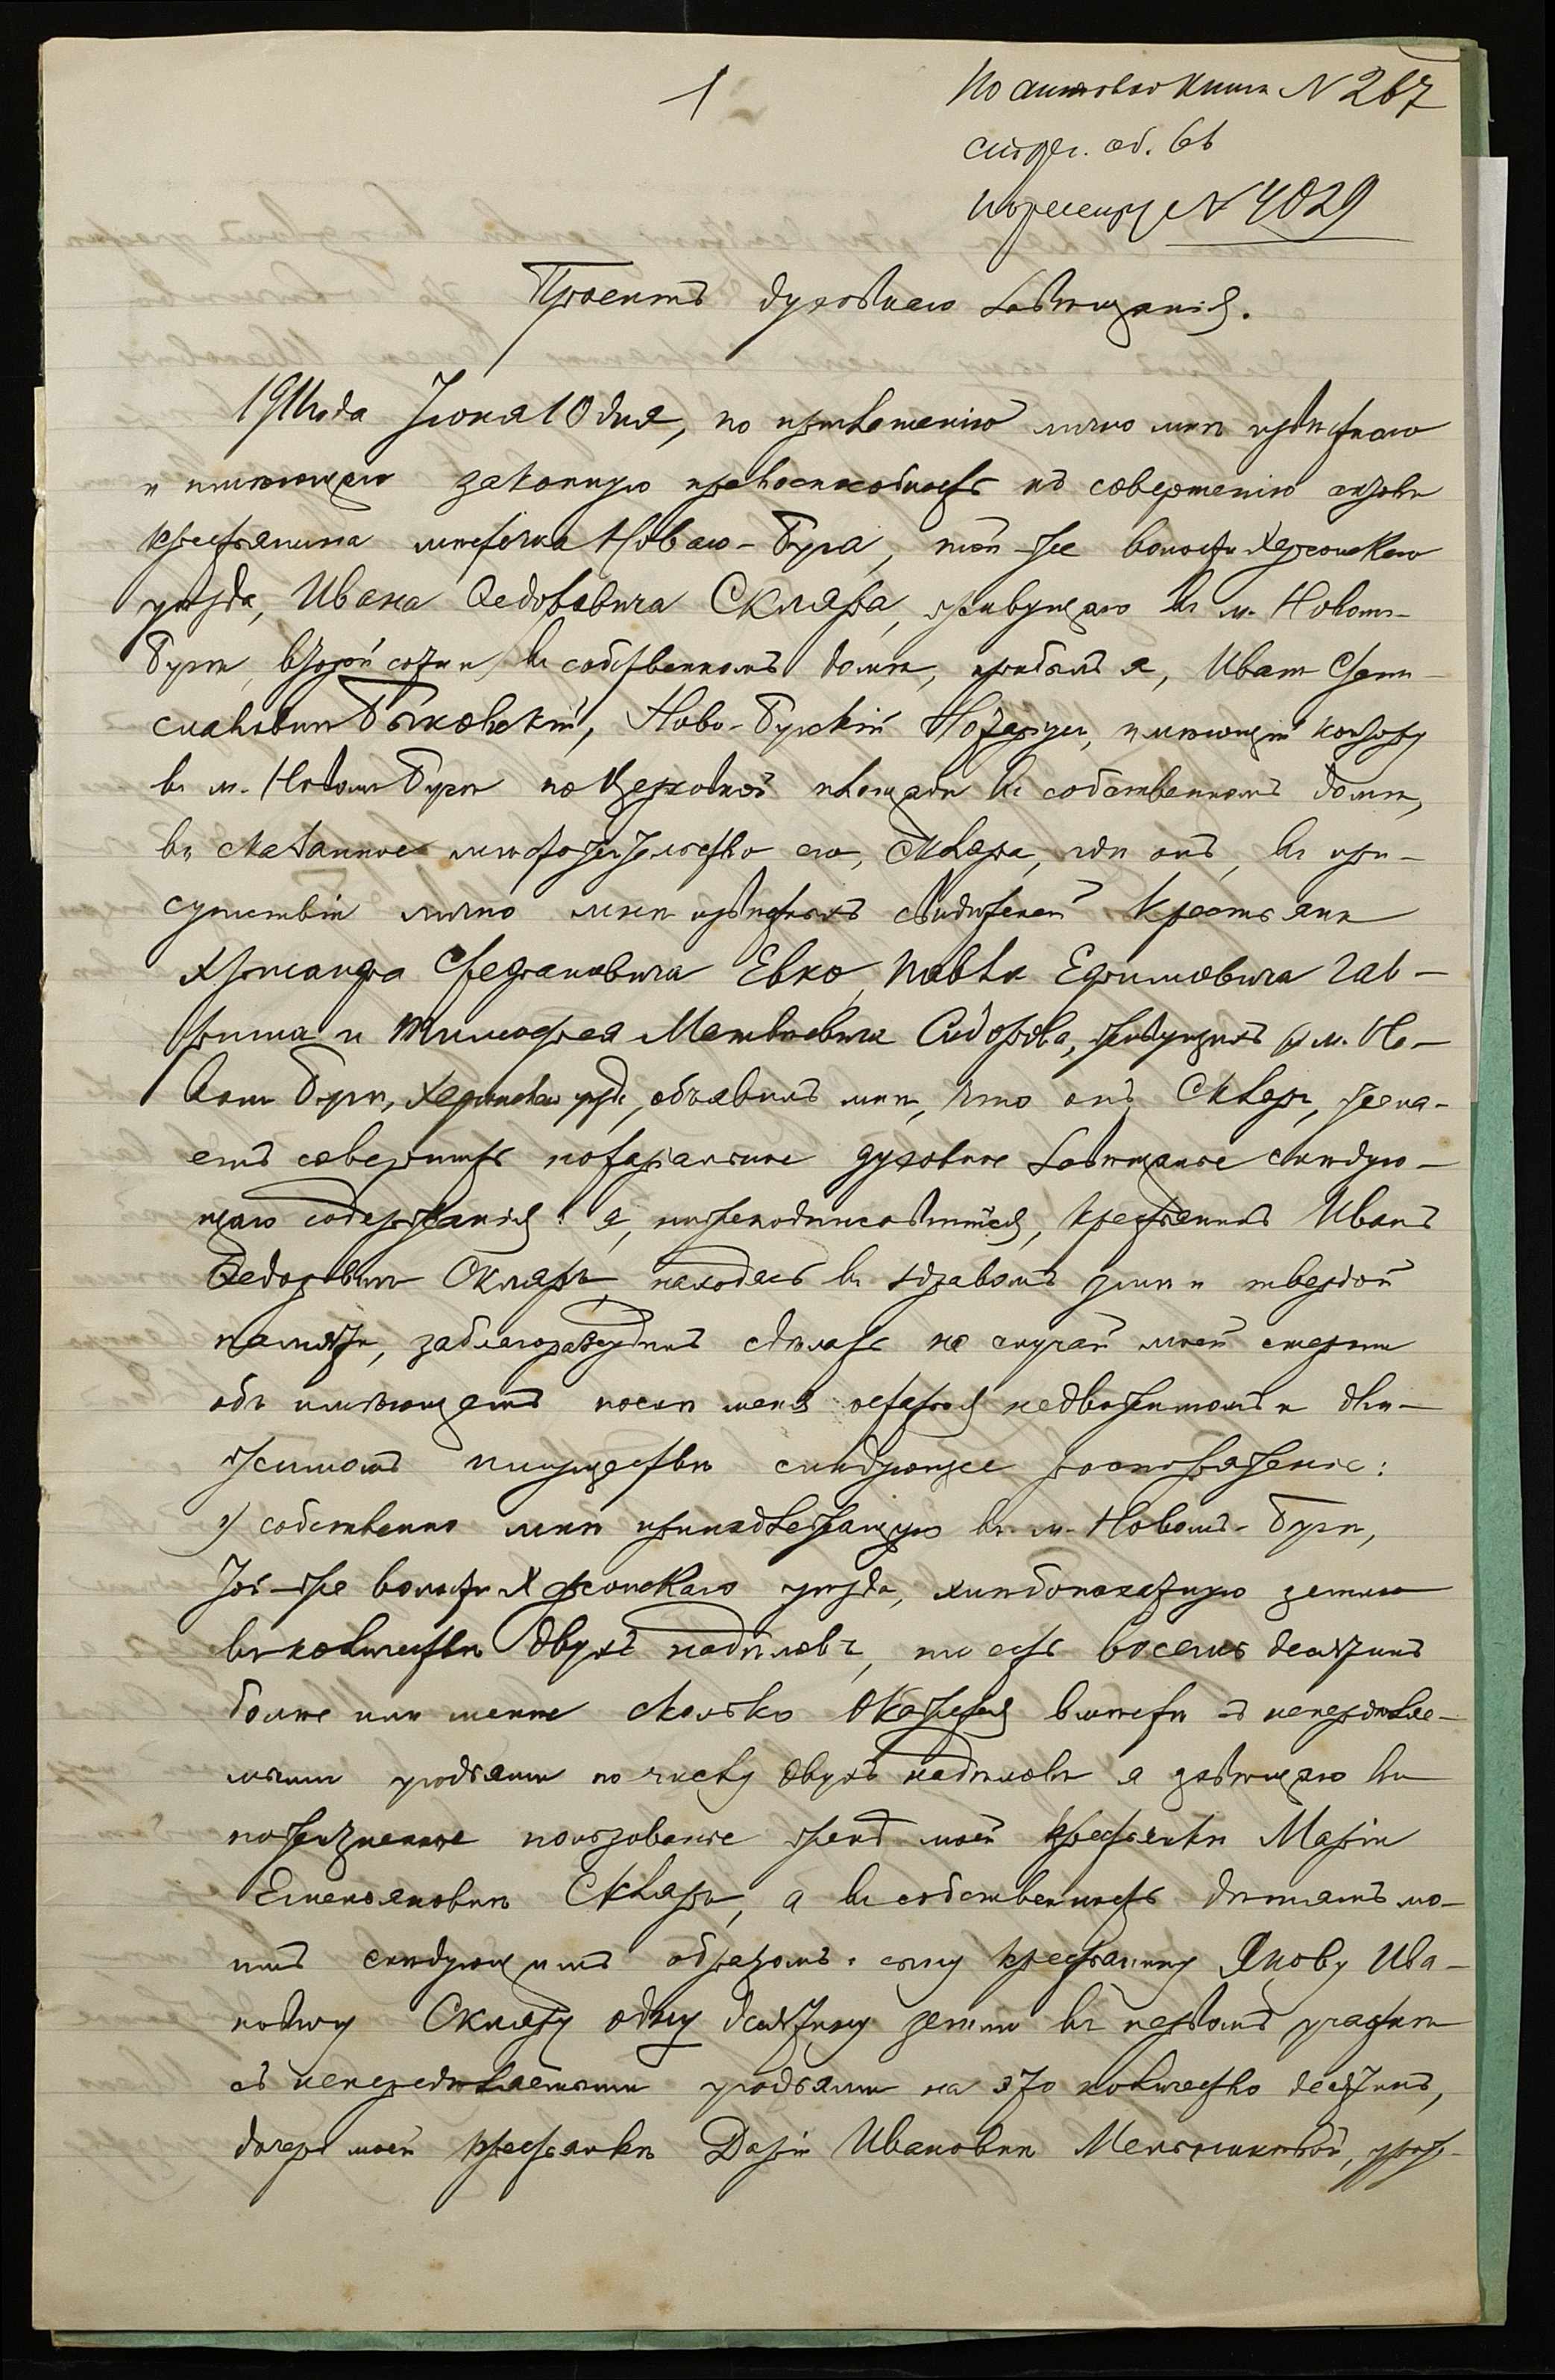 1
По актовой книге N 267
По реестру N 4029
Проектъ духовнаго завѣщанія.
1911 года Іюня 10 дня, по приглашенію лично мнѣ извѣстнаго
и имѣющаго законную правоспособность къ совершенію актовъ
крестьянина мѣстечка Новаго-Буга, той-же волости Херсонскаго
уѣзда, Ивана Ѳедоровича Скляра, живущаго въ м. Новомъ-
Бугѣ, второй сотни, въ собственномъ домѣ, прибылъ я, Иванъ Стани-
славовичъ Бычковскій, Ново-Бугскій Нотаріусъ, имѣющій контору
въ м. Новомъ Бугѣ по Церковной площади въ собственномъ домѣ,
въ сказанное мѣстожительство его, Скляра, гдѣ онъ, въ при-
сутствіи лично мнѣ извѣстныхъ свидѣтелей крестьянъ
Хрисанфа Стефановича Евко, Павла Ефимовича Гав-
риша и Тимофея Матвѣевича Сидорова, живущихъ въ м. Но-
вомъ Бугѣ, Херсонскаго уѣзда, объявилъ мнѣ, что онъ, Скляръ, жела-
етъ совершить нотаріальное духовное завѣщаніе слѣдую-
щаго содержанія: я, нижеподписавшійся, крестьянинъ Иванъ
Ѳедоровичъ Скляръ, находясь въ здравомъ умѣ и твердой
памяти, заблагоразсудилъ сдѣлать на случай моей смерти
объ имѣющемъ послѣ меня остаться недвижимомъ и дви-
жимомъ имуществѣ слѣдующее распоряженіе:
1) собственно мнѣ принадлежащую въ м. Новомъ-Бугѣ,
той-же волости Херсонскаго уѣзда, хлѣбопахатную землю
въ количествѣ двухъ надѣловъ, то есть восемь десятинъ
болѣе или менѣе сколько окажется вмѣстѣ съ нераздѣляе-
мыми угодьями по числу двухъ надѣловъ я завѣщаю въ
пожизненное пользованіе женѣ моей крестьянкѣ Маріи
Емельяновнѣ Скляръ, а въ собственность дѣтямъ мо-
имъ слѣдующимъ образомъ: сыну крестьянину Якову Ива-
новичу Скляру одну десятину земли въ первомъ участкѣ
съ нераздѣляемыми угодьями на это количество десятинъ,
дочери моей крестьянкѣ Даріи Ивановнѣ Меньшиковой, урож-